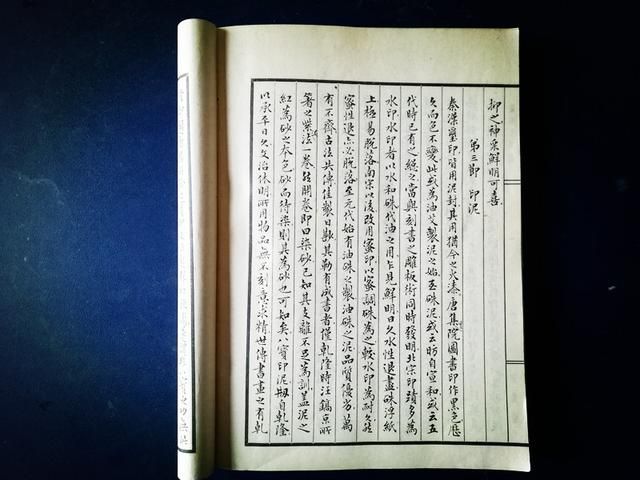 抑之神采鮮明可喜
第三節 印泥
秦漢璽印皆用泥封其用猶今之火漆唐集院圖書印作黑色歷
久而色不變此或為油艾製泥之始至硃泥或云昉自宣和或云五
代時已有之總之當與刻書之雕板術同時發明北宗印蹟多為
水印水印者以水和硃代油之用乍見鮮明日久水性退盡硃浮紙
上極易脫落南宗以後改用蜜印以蜜調硃為之較水印為耐久然
蜜性退亦必脫落至元代始有油硃之製油硃之泥品質優劣萬
有不齊古法失傳佳製日尟其勒有成書者僅乾隆時汪鎬京所
箸之紫泥法一卷然開卷即曰染砂已知其支離不足為訓蓋泥之
紅為砂之本色砂而待染則其為砂也可知矣八寶印泥刱自乾隆
以承平日久文治休明所用物品無不刻意求精世傳書畫之有乾